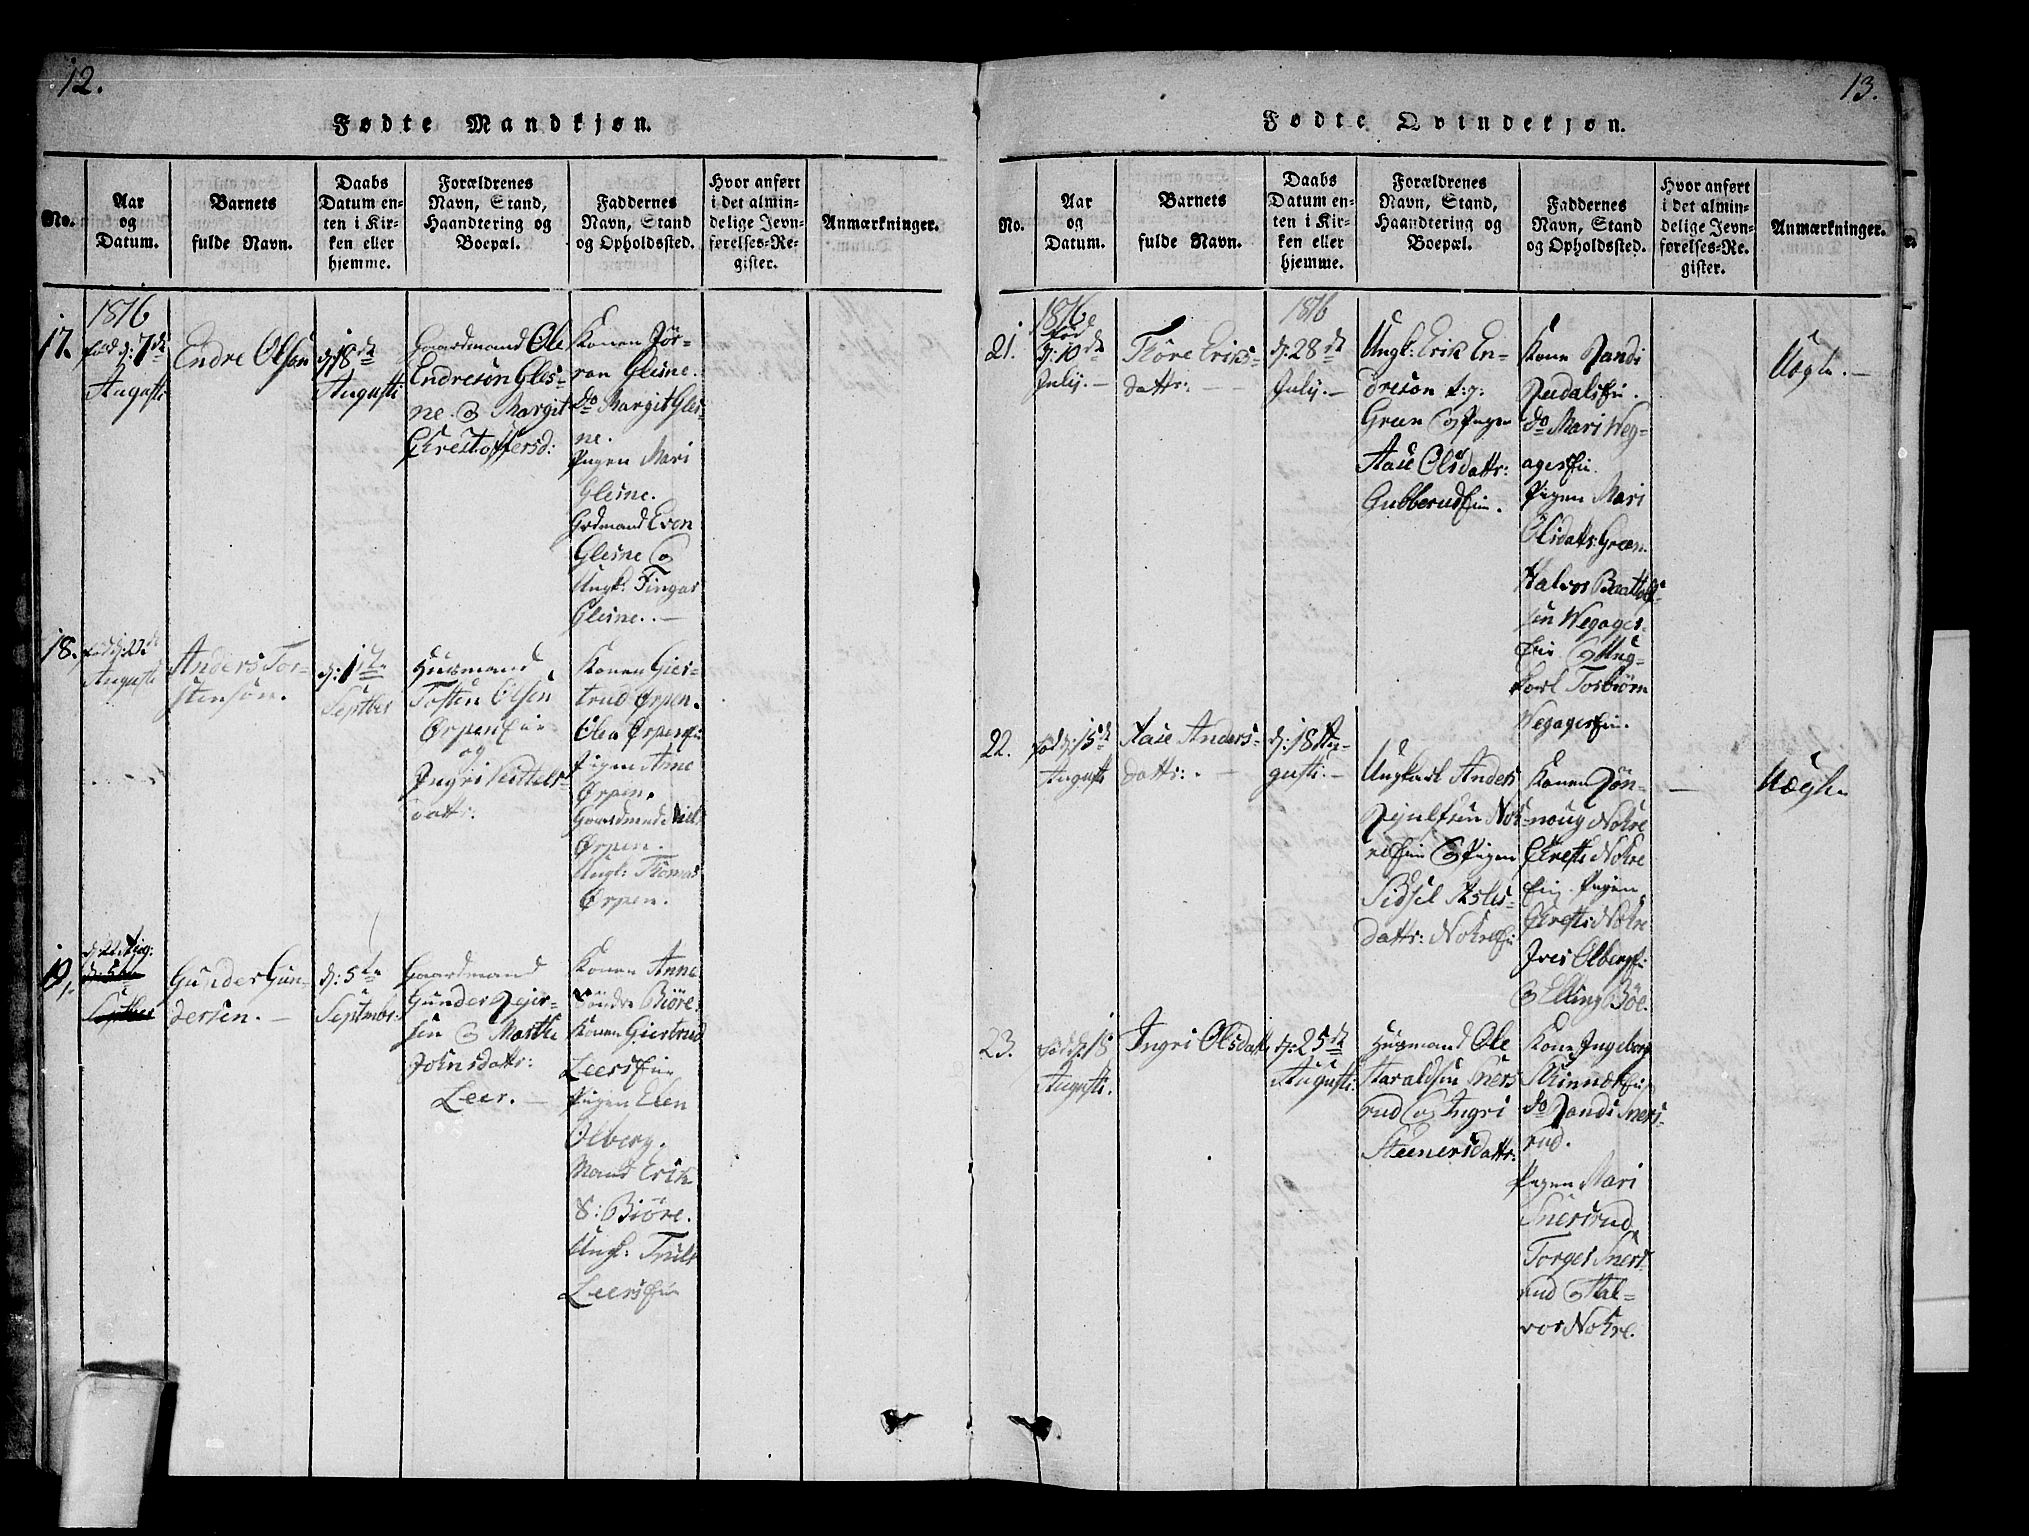 12.
Fødte Mandkjøn.
No.
Aar
og
Datum.
Barnets
fulde Navn.
Daabs
Datum en-
ten i Kir-
ken eller
hjemme.
Forældrenes
Navn, Stand,
Haandtering og
Boepæl.
Faddernes
Navn, Stand
og Opholdssted.
Hvor anført
i det almin-
delige Jevn-
førelses-Re-
gister.
Anmærkninger.
17.
1816
fød d: 7de
Augusti
Endre Olsen
d: 18de
Augusti
Gaardmand Ole
Endresøn Gles-
ne. og Margit
Christoffersd:
Konen Jör-
ran Glesne.
do Margit Gles
ne.
Pigen Mari
Glesne.
Grdmand Even
Glesne og
Ungk: Fingar
Glesne. —
18.
fød d: 22de
Augusti
Anders Tor-
stensøn.
d: 1te
Septber
Husmand
Tosten Olsen
Ørpen
og
Ingri Kittels-
datt:
Konen Gier-
trud Ørpen.
Olea Ørpen
Pigen Anne
Ørpen.
Gaardmand
Ørpen.
Ungk: Thomas
Ørpen.
19.
d: 22 Aug:
d: 5te
Septber
Gunder Gun-
dersen. —
d: 5te
Septmbr:
Gaardmand
Gunder
sen og Marthe
Johnsdattr:
Leer. —
Konen Anne
Söndre Biöre
Konen Giertrud
Leers
Pigen Elen
Olberg.
Mand Erik
S: Biöre.
Ungk: Truls
Leers
13.
Fødte Qvindekjøn.
No.
Aar
og
Datum.
Barnets
fulde Navn.
Daabs
Datum en-
ten i Kir-
ken eller
hjemme.
Forældrenes
Navn, Stand,
Haandtering og
Boepæl.
Faddernes
Navn, Stand
og Opholdssted.
Hvor anført
i det almin-
delige Jevn-
førelses-Re-
gister.
Anmærkninger.
21.
1816
fød
d: 10de
July. —
Thöre Eriks-
dattr: — —
1816
d: 28de
July. —
Ungk: Erik En-
dreson
Green og Pigen
Aase Olsdattr:
Gubberud
Kone Randi
do Mari Weg-
ager
Pigen Mari
Olsdattr: Green
Halvor
sen Wegager-
og Ung-
karl Torbiörn
Wegager
Uægte. —
22.
fød d: 15de
Augusti
Aase Anders-
dattr: . —
d: 18 Au-
gusti. —
Ungkarl Anders
Nok-
re og Pigen
Sidsel Asles-
dattr: Nokre
Konen Rön-
noug Nokre
Chresti Nokre
Pigen
Chresti Nokre
Iver Olberg
og Elling Böe.
—
Uægte
23.
fød d: 18
Augusti.
Ingri Olsdattr
d: 25de
Augusti:
Husmand Ole
Haraldsen Sners
rud og Ingri
Steenersdattr:
Kone Ingeborg
do Randi Sners-
rud.
Pigen Mari
Snersrud
Torger Sners
rud og Hal-
vor Nokre.